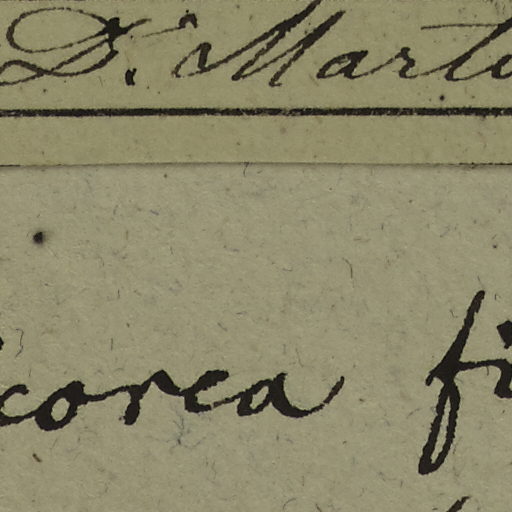 Dr. Martu
icorea fi